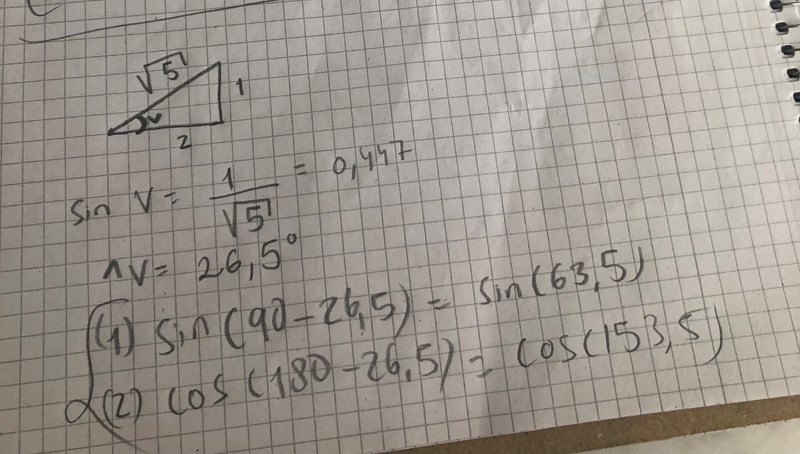 √5
1
v
2
sin v = 1/√5 = 0,447
∧v = 26,5°
(1) sin(90-26,5) = sin(63,5)
(2) cos(180-26,5) = cos(153,5)